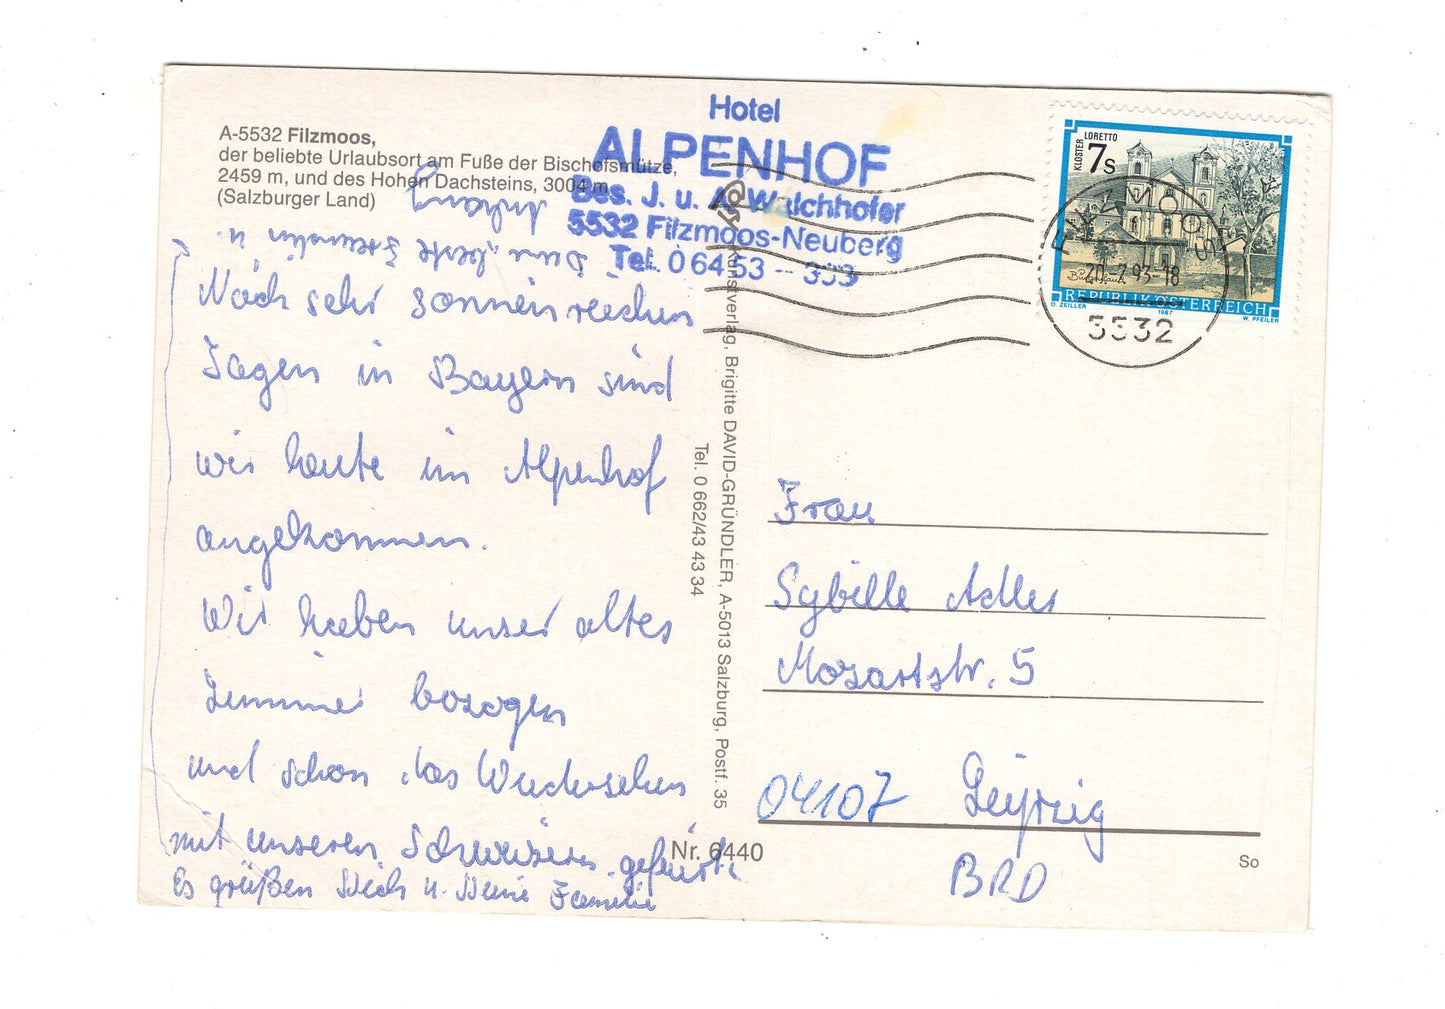 A-5532 Filzmoos,
der beliebte Urlaubsort am Fuße der Bischofsmütze,
2459 m, und des Hohen Dachsteins, 3004 m
(Salzburger Land)
Hotel
ALPENHOF
Bes. J. u. A. Walchhofer
5532 Filzmoos-Neuberg
Tel. 0 64 53 - 333
KLOSTER LORETTO
7s
Burgenland
REPUBLIK ÖSTERREICH
O. ZEILLER 1987 W. PFEILER
FILZMOOS
20.-7.93-18
5532
Nach sehr sonnenreichen
Tagen in Bayern sind
wir heute im Alpenhof
angekommen.
Wir haben unser altes
Zimmer bezogen
und schon das Wiedersehen
mit unseren Schweizern gefeiert.
Es grüßen Dich u. Deine Familie
Deine beste Freundin u.
Anhang
Kunstverlag, Brigitte DAVID-GRÜNDLER, A-5013 Salzburg, Postf. 35
Tel. 0 662/43 43 34
Nr. 6440
Frau
Sybille Adler
Mozartstr. 5
04107 Leipzig
BRD
So